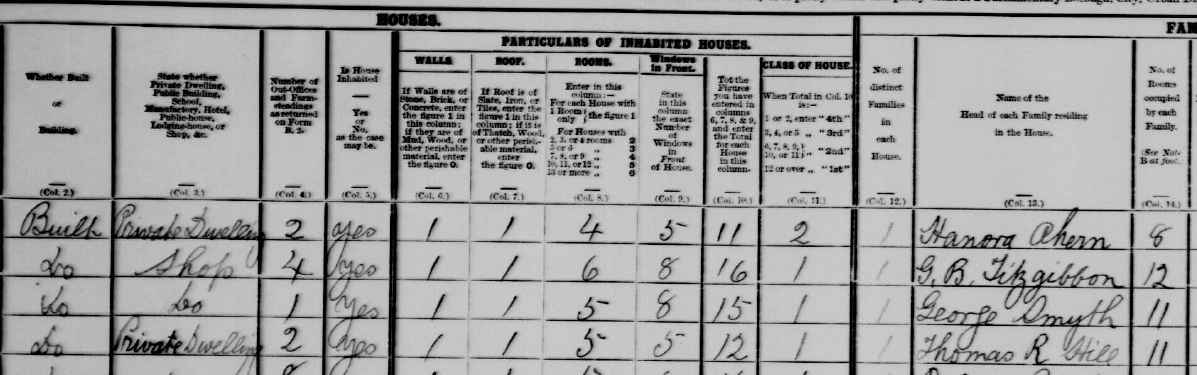 HOUSES.
FAM
PARTICULARS OF INHABITED HOUSES.
Whether Built or Building.
State whether Private Dwelling, Public Building, School, Manufactory, Hotel, Public-house, Lodging-house, or Shop, &c.
Number of Out-Offices and Farm-steadings as returned on Form B. 2.
Is House Inhabited — Yes or No, as the case may be.
WALLS. If Walls are of Stone, Brick, or Concrete, enter the figure 1 in this column; if they are of Mud, Wood, or other perishable material, enter the figure 0.
ROOF. If Roof is of Slate, Iron, or Tiles, enter the figure 1 in this column; if it is of Thatch, Wood, or other perishable material, enter the figure 0.
ROOMS. Enter in this column:— For each House with 1 Room } the figure 1 only For Houses with 2, 3, or 4 rooms 2 5 or 6 „ 3 7, 8, or 9 „ 4 10, 11, or 12 „ 5 13 or more „ 6
Windows in Front. State in this column the exact Number of Windows in Front of House.
Tot the Figures you have entered in columns 6, 7, 8, & 9, and enter the Total for each House in this column.
CLASS OF HOUSE. When Total in Col. 10 is:— 1 or 2, enter "4th" 3, 4, or 5 „ "3rd" 6, 7, 8, 9, 10, or 11 } „ "2nd" 12 or over „ "1st"
No. of distinct Families in each House.
Name of the Head of each Family residing in the House.
No. of Rooms occupied by each Family. (See Note B at foot.)
(Col. 2.) (Col. 3.) (Col. 4.) (Col. 5.) (Col. 6.) (Col. 7.) (Col. 8.) (Col. 9.) (Col. 10.) (Col. 11.) (Col. 12.) (Col. 13.) (Col. 14.)
Built Private Dwelling 2 yes 1 1 4 5 11 2 1 Hanora Ahern 8
Do Shop 4 yes 1 1 6 8 16 1 1 G. B. Fitzgibbon 12
Do Do 1 yes 1 1 5 8 15 1 1 George Smyth 11
Do Private Dwelling 2 yes 1 1 5 5 12 1 1 Thomas R Hill 11